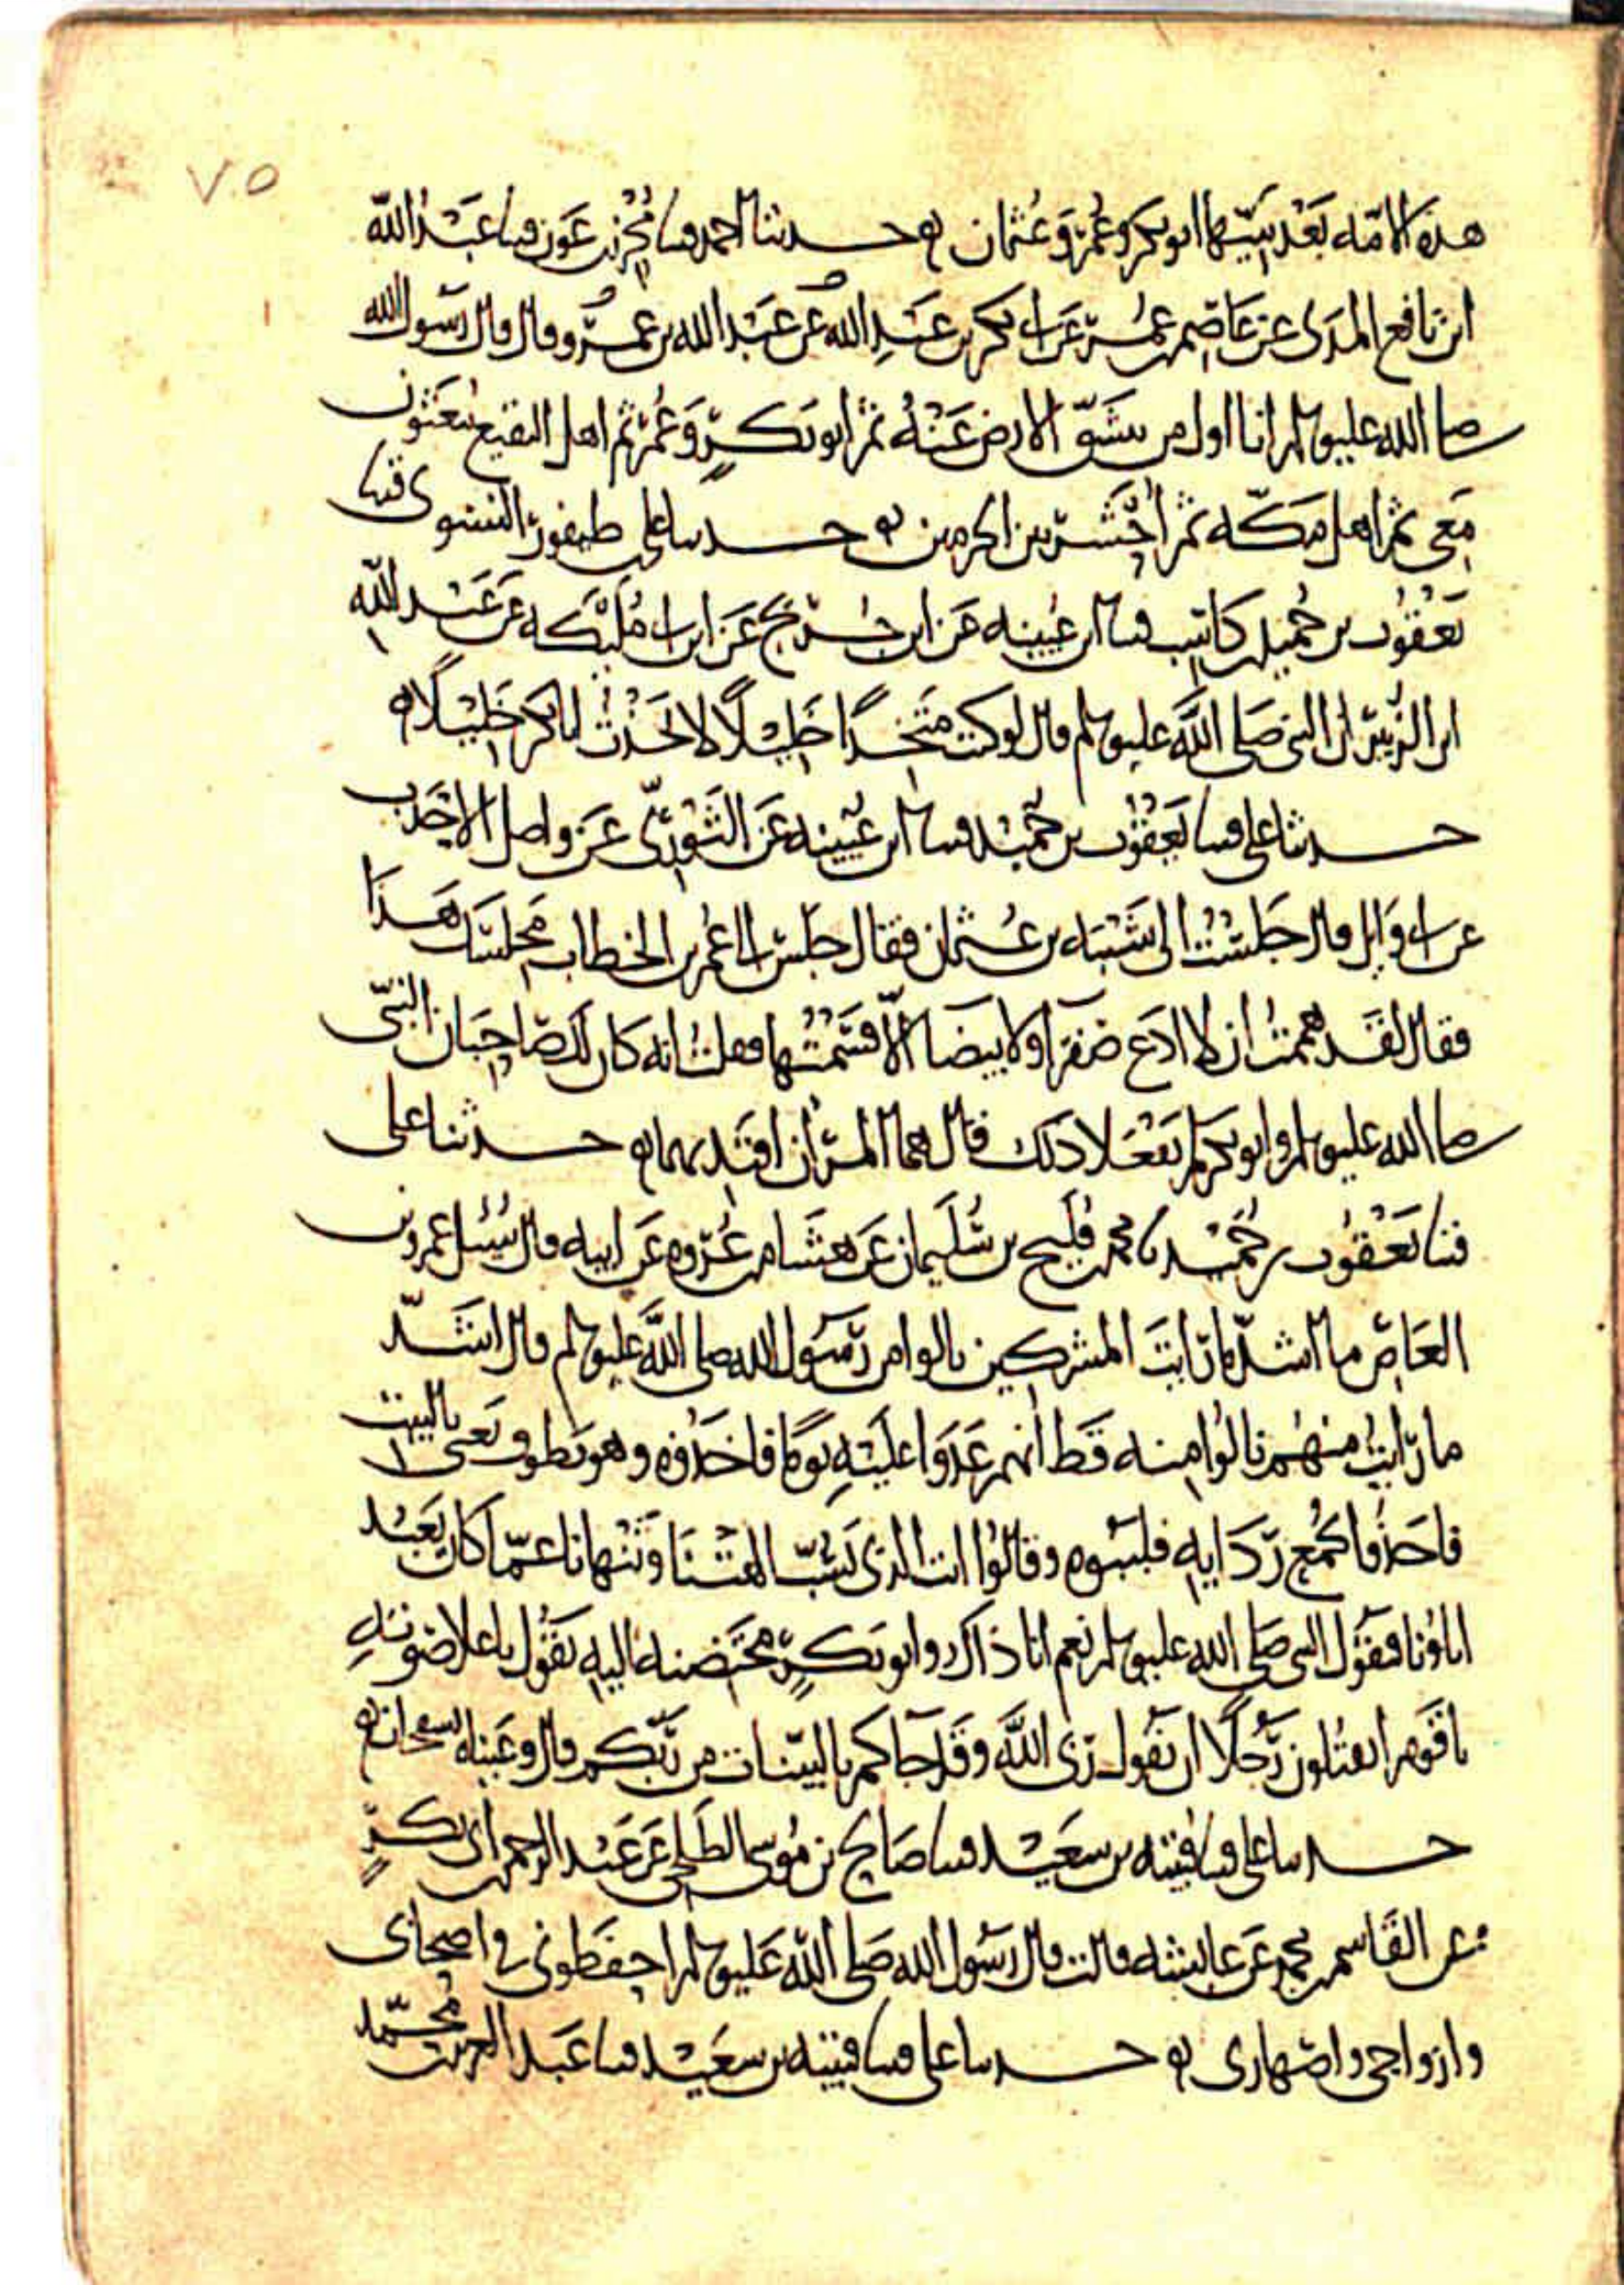 ٧٥
هذه الامه بعد نبيها ابو بكر وعمر وعثمان ۞ حدثنا احمد قثنا محرز بن عون قثنا عبد الله
ابن نافع المدني عن عاصم بن عمر عن ابي بكر بن عبد الله عن عبد الله بن عمرو قال قال رسول الله
صلى الله عليه وسلم انا اول من تنشق الارض عنه ثم ابو بكر وعمر ثم اهل البقيع يبعثون
معي ثم اهل مكه ثم احشر بين الحرمين ۞ حدثنا علي بن طيفور النسوي قثنا
يعقوب بن حميد بن كاسب قثنا ابن عيينه عن ابن جريج عن ابن ابي مليكه عن عبد الله
ابن الزبير ان النبي صلى الله عليه وسلم قال لو كنت متخذا خليلا لاتخذت ابا بكر خليلا ۞
حدثنا علي قثنا يعقوب بن حميد قثنا ابن عيينه عن الثوري عن واصل الاحدب
عن ابي وايل قال جلست الى شيبه بن عثمان فقال جلس الي عمر بن الخطاب مجلسك هذا
فقال لقد هممت ان لا ادع صفرا ولا بيضا الا قسمتها فقلت انه كان لك صاحبان النبي
صلى الله عليه وسلم وابو بكر لم يفعلا ذلك قال هما المران اقتد بهما ۞ حدثنا علي
قثنا يعقوب بن حميد نا محمد بن فليح بن سليمان عن هشام بن عروه عن ابيه قال سئل عمرو بن
العاص ما اشد ما رايت المشركين نالوا من رسول الله صلى الله عليه وسلم قال اشد
ما رايت منهم نالوا منه قط انهم عدوا عليه يوما فاخذوه وهو يطوف يعني بالبيت
فاخذوا بجمع ردايه فلببوه وقالوا انت الذي تسب الهتنا وتنهانا عما كان يعبد
اباؤنا فيقول النبي صلى الله عليه وسلم نعم انا ذاك وابو بكر محتضنه اليه يقول باعلا صوته
يا قوم اتقتلون رجلا ان يقول ربي الله وقد جاكم بالبينات من ربكم قال وعيناه تسفحان ۞
حدثنا علي قثنا قتيبه بن سعيد قثنا صالح بن موسى الطلحي عن عبد الرحمن بن ابي بكر
عن القاسم بن محمد عن عايشه قالت قال رسول الله صلى الله عليه وسلم احفظوني في اصحابي
وازواجي واصهاري ۞ حدثنا علي قثنا قتيبه بن سعيد قثنا عبد العزيز بن محمد